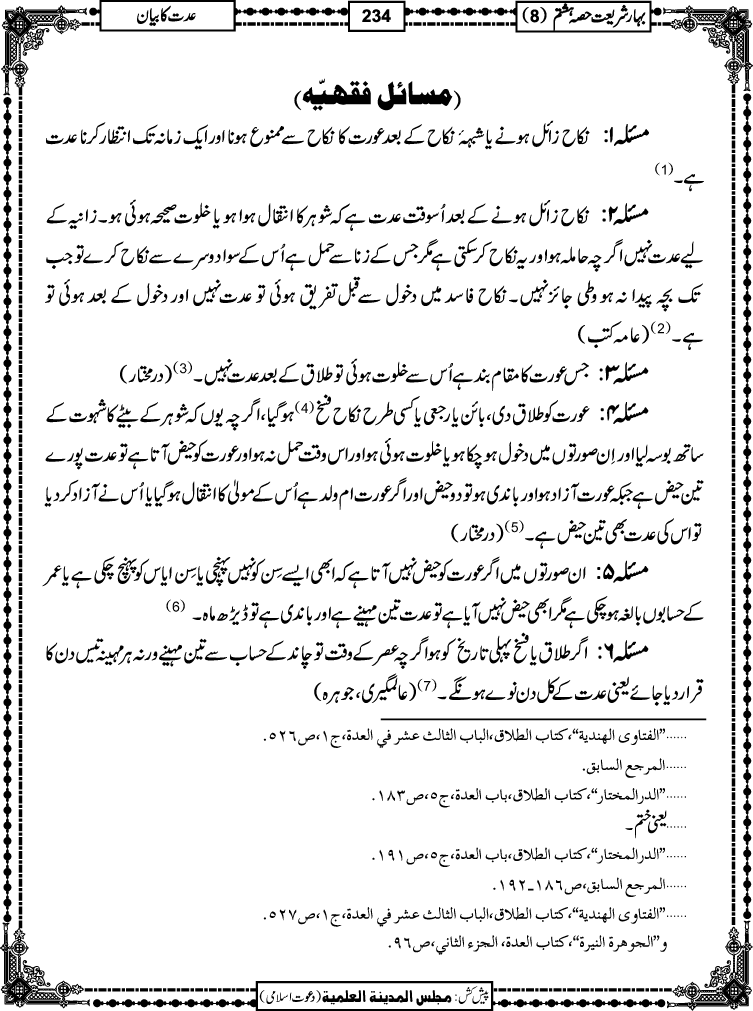 بہار شریعت حصہ ہشتم (8)
234
عدت کا بیان
(مسائل فقہیّہ)
مسئلہ ۱: نکاح زائل ہونے یا شبہۂ نکاح کے بعد عورت کا نکاح سے ممنوع ہونا اور ایک زمانہ تک انتظار کرنا عدت
ہے۔(1)
مسئلہ ۲: نکاح زائل ہونے کے بعد اُسوقت عدت ہے کہ شوہر کا انتقال ہوا ہو یا خلوت صحیحہ ہوئی ہو۔ زانیہ کے
لیے عدت نہیں اگرچہ حاملہ ہو اور یہ نکاح کر سکتی ہے مگر جس کے زنا سے حمل ہے اُس کے سوا دوسرے سے نکاح کرے تو جب
تک بچہ پیدا نہ ہو وطی جائز نہیں۔ نکاح فاسد میں دخول سے قبل تفریق ہوئی تو عدت نہیں اور دخول کے بعد ہوئی تو
ہے۔(2) (عامہ کتب)
مسئلہ ۳: جس عورت کا مقام بند ہے اُس سے خلوت ہوئی تو طلاق کے بعد عدت نہیں۔(3) (درمختار)
مسئلہ ۴: عورت کو طلاق دی، بائن یا رجعی یا کسی طرح نکاح فسخ(4) ہوگیا، اگرچہ یوں کہ شوہر کے بیٹے کا شہوت کے
ساتھ بوسہ لیا اور اِن صورتوں میں دخول ہو چکا ہو یا خلوت ہوئی ہو اور اس وقت حمل نہ ہو اور عورت کو حیض آتا ہے تو عدت پورے
تین حیض ہے جبکہ عورت آزاد ہو اور باندی ہو تو دو حیض اور اگر عورت ام ولد ہے اُس کے مولیٰ کا انتقال ہوگیا یا اُس نے آزاد کر دیا
تو اس کی عدت بھی تین حیض ہے۔(5) (درمختار)
مسئلہ ۵: ان صورتوں میں اگر عورت کو حیض نہیں آتا ہے کہ ابھی ایسے سِن کو نہیں پہنچی یا سِن ایاس کو پہنچ چکی ہے یا عمر
کے حسابوں بالغہ ہو چکی ہے مگر ابھی حیض نہیں آیا ہے تو عدت تین مہینے ہے اور باندی ہے تو ڈیڑھ ماہ۔ (6)
مسئلہ ۶: اگر طلاق یا فسخ پہلی تاریخ کو ہو اگرچہ عصر کے وقت تو چاند کے حساب سے تین مہینے ورنہ ہر مہینہ تیس دن کا
قرار دیا جائے یعنی عدت کے کل دن نوے ہونگے۔(7) (عالمگیری، جوہرہ)
......"الفتاوی الهندیة"، کتاب الطلاق، الباب الثالث عشر في العدة، ج١، ص٥٢٦.
......المرجع السابق.
......"الدرالمختار"، کتاب الطلاق، باب العدة، ج٥، ص١٨٣.
......یعنی ختم۔
......"الدرالمختار"، کتاب الطلاق، باب العدة، ج٥، ص١٩١.
......المرجع السابق، ص١٨٦ـ١٩٢.
......"الفتاوی الهندیة"، کتاب الطلاق، الباب الثالث عشر في العدة، ج١، ص٥٢٧.
و"الجوهرة النیرة"، کتاب العدة، الجزء الثاني، ص٩٦.
پیش کش: مجلس المدینة العلمیة (دعوت اسلامی)